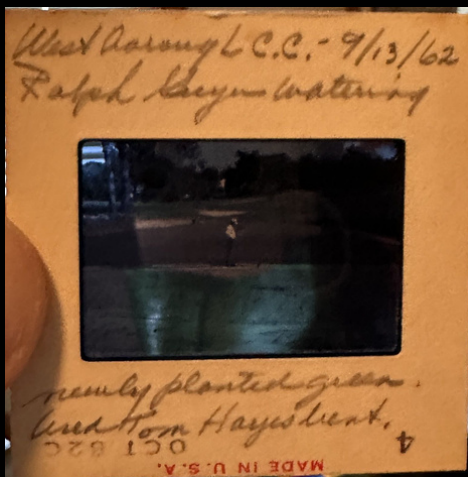 West Borough C.C. - 9/13/62
Ralph Guyer watering
newly planted green.
Used Tom Hayes bent.
4
OCT 62C
MADE IN U.S.A.